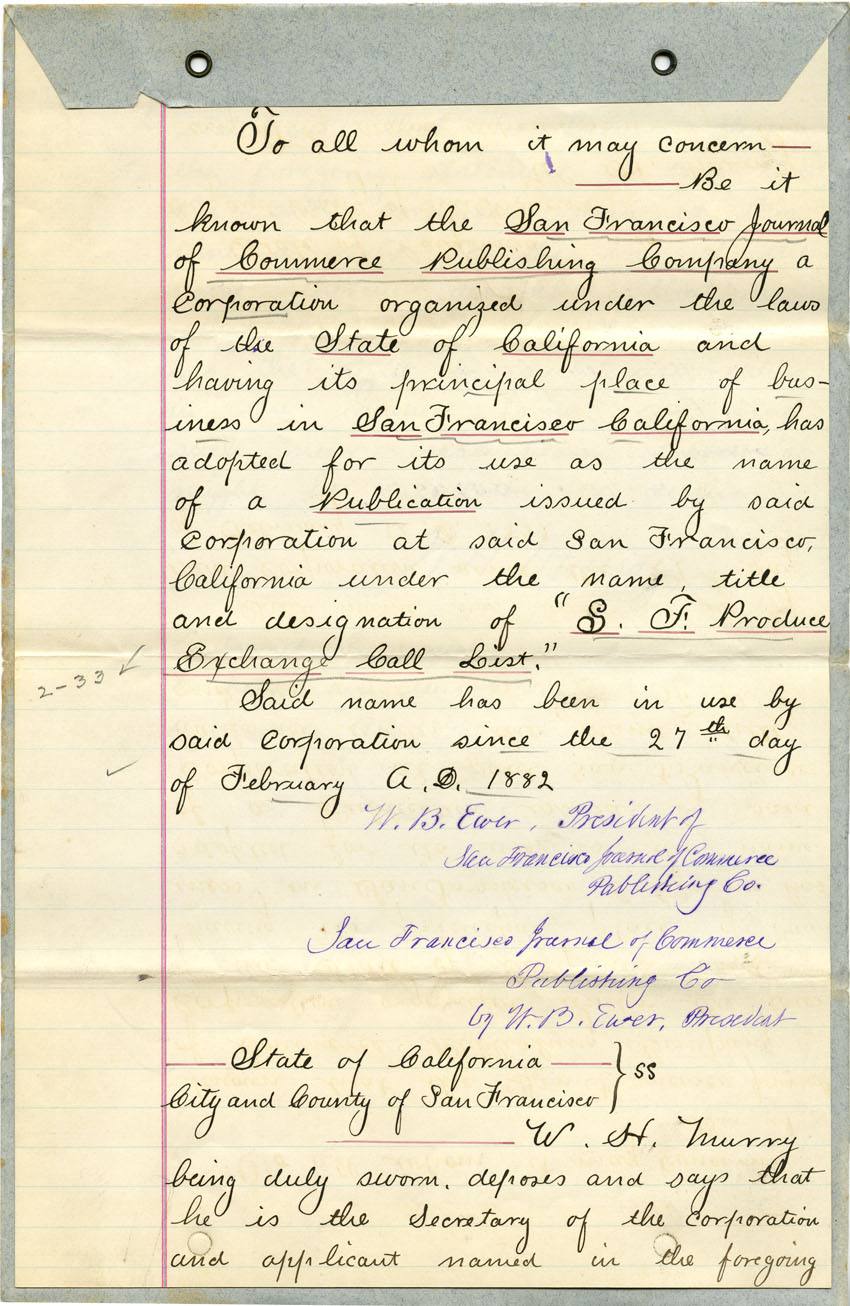 To all whom it may concern—
Be it
known that the San Francisco Journal
of Commerce Publishing Company a
Corporation organized under the laws
of the State of California and
having its principal place of bus-
iness in San Francisco California, has
adopted for its use as the name
of a Publication issued by said
Corporation at said San Francisco,
California under the name, title
and designation of "S. F. Produce
Exchange Call List."
2-33
Said name has been in use by
said Corporation since the 27th day
of February A.D. 1882
W. B. Ewer, President of
San Francisco Journal of Commerce
Publishing Co.
San Francisco Journal of Commerce
Publishing Co
by W. B. Ewer, President
State of California
City and County of San Francisco } ss
W. H. Murry
being duly sworn. deposes and says that
he is the Secretary of the Corporation
and applicant named in the foregoing